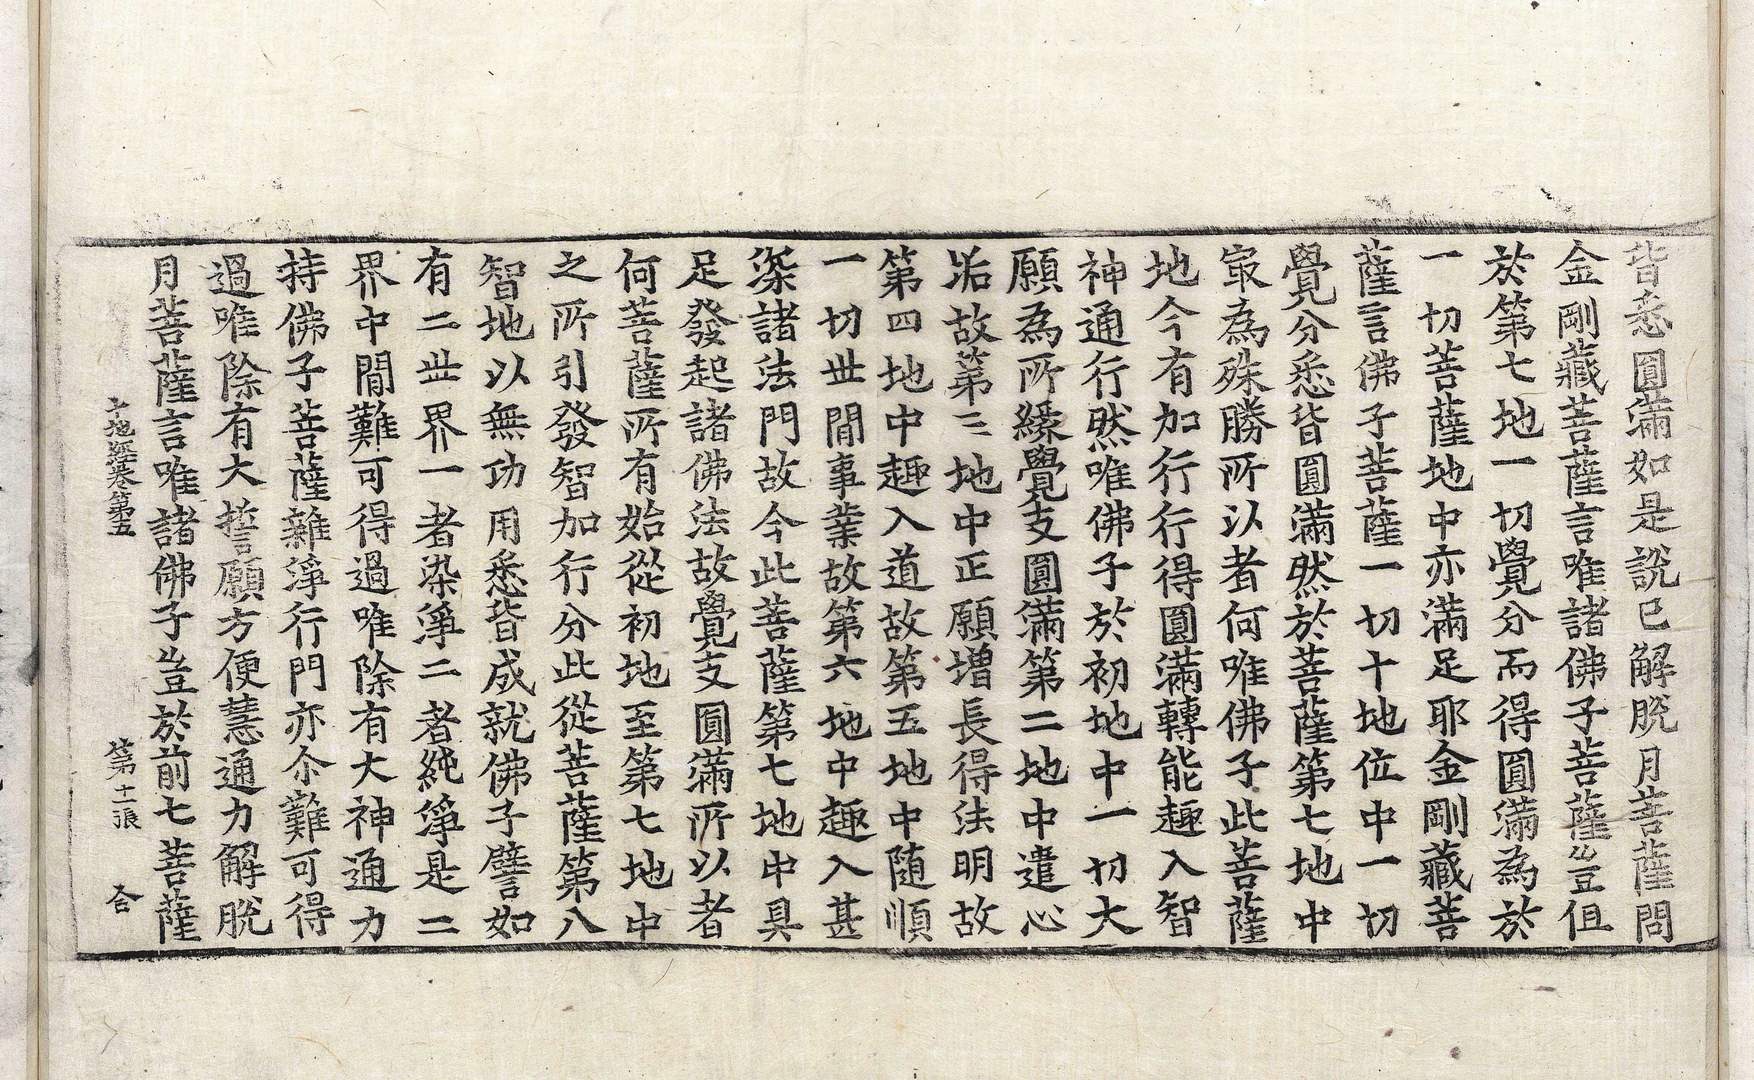 皆悉圓滿如是說已解脫月菩薩問
金剛藏菩薩言唯諸佛子菩薩豈但
於第七地一切覺分而得圓滿為於
一切菩薩地中亦滿足耶金剛藏菩
薩言佛子菩薩一切十地位中一切
覺分悉皆圓滿然於菩薩第七地中
㝡為殊勝所以者何唯佛子此菩薩
地今有加行行得圓滿轉能趣入智
神通行然唯佛子於初地中一切大
願為所緣覺支圓滿第二地中遣心
垢故第三地中正願增長得法明故
第四地中趣入道故第五地中随順
一切世間事業故第六地中趣入甚
深諸法門故今此菩薩第七地中具
足發起諸佛法故覺支圓滿所以者
何菩薩所有始從初地至第七地中
之所引發智加行分此從菩薩第八
智地以無功用悉皆成就佛子譬如
有二世界一者染淨二者純淨是二
界中間難可得過唯除有大神通力
持佛子菩薩雜淨行門亦尒難可得
過唯除有大誓願方便慧通力解脫
月菩薩言唯諸佛子豈於前七菩薩
十地經卷第五　第十一張　合